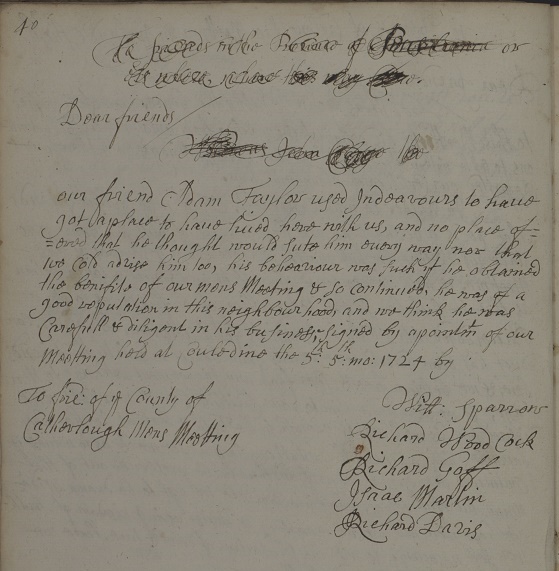 40
To friends in the Province of Pensilvania or
Dear friends
our friend Adam Taylor used Indeavours to have
got a place to have lived here with us, and no place of=
=ered that he thought would sute him every way nor that
we cold advise him too, his behaviour was such yt he obtained
the benifite of our mens Meeting & so continued, he was of a
good reputation in this neighbourhood, and we think he was
Carefull & diligent in his business, signed by apointmt of our
Meeting held at Couledine the 5th 5th mo: 1724 by
To fre: of ye County of
Catherlough Mens Meeting
Will: Sparrow
Richard Wood Cock
Richard Goff
Isaac Martin
Richard Davis